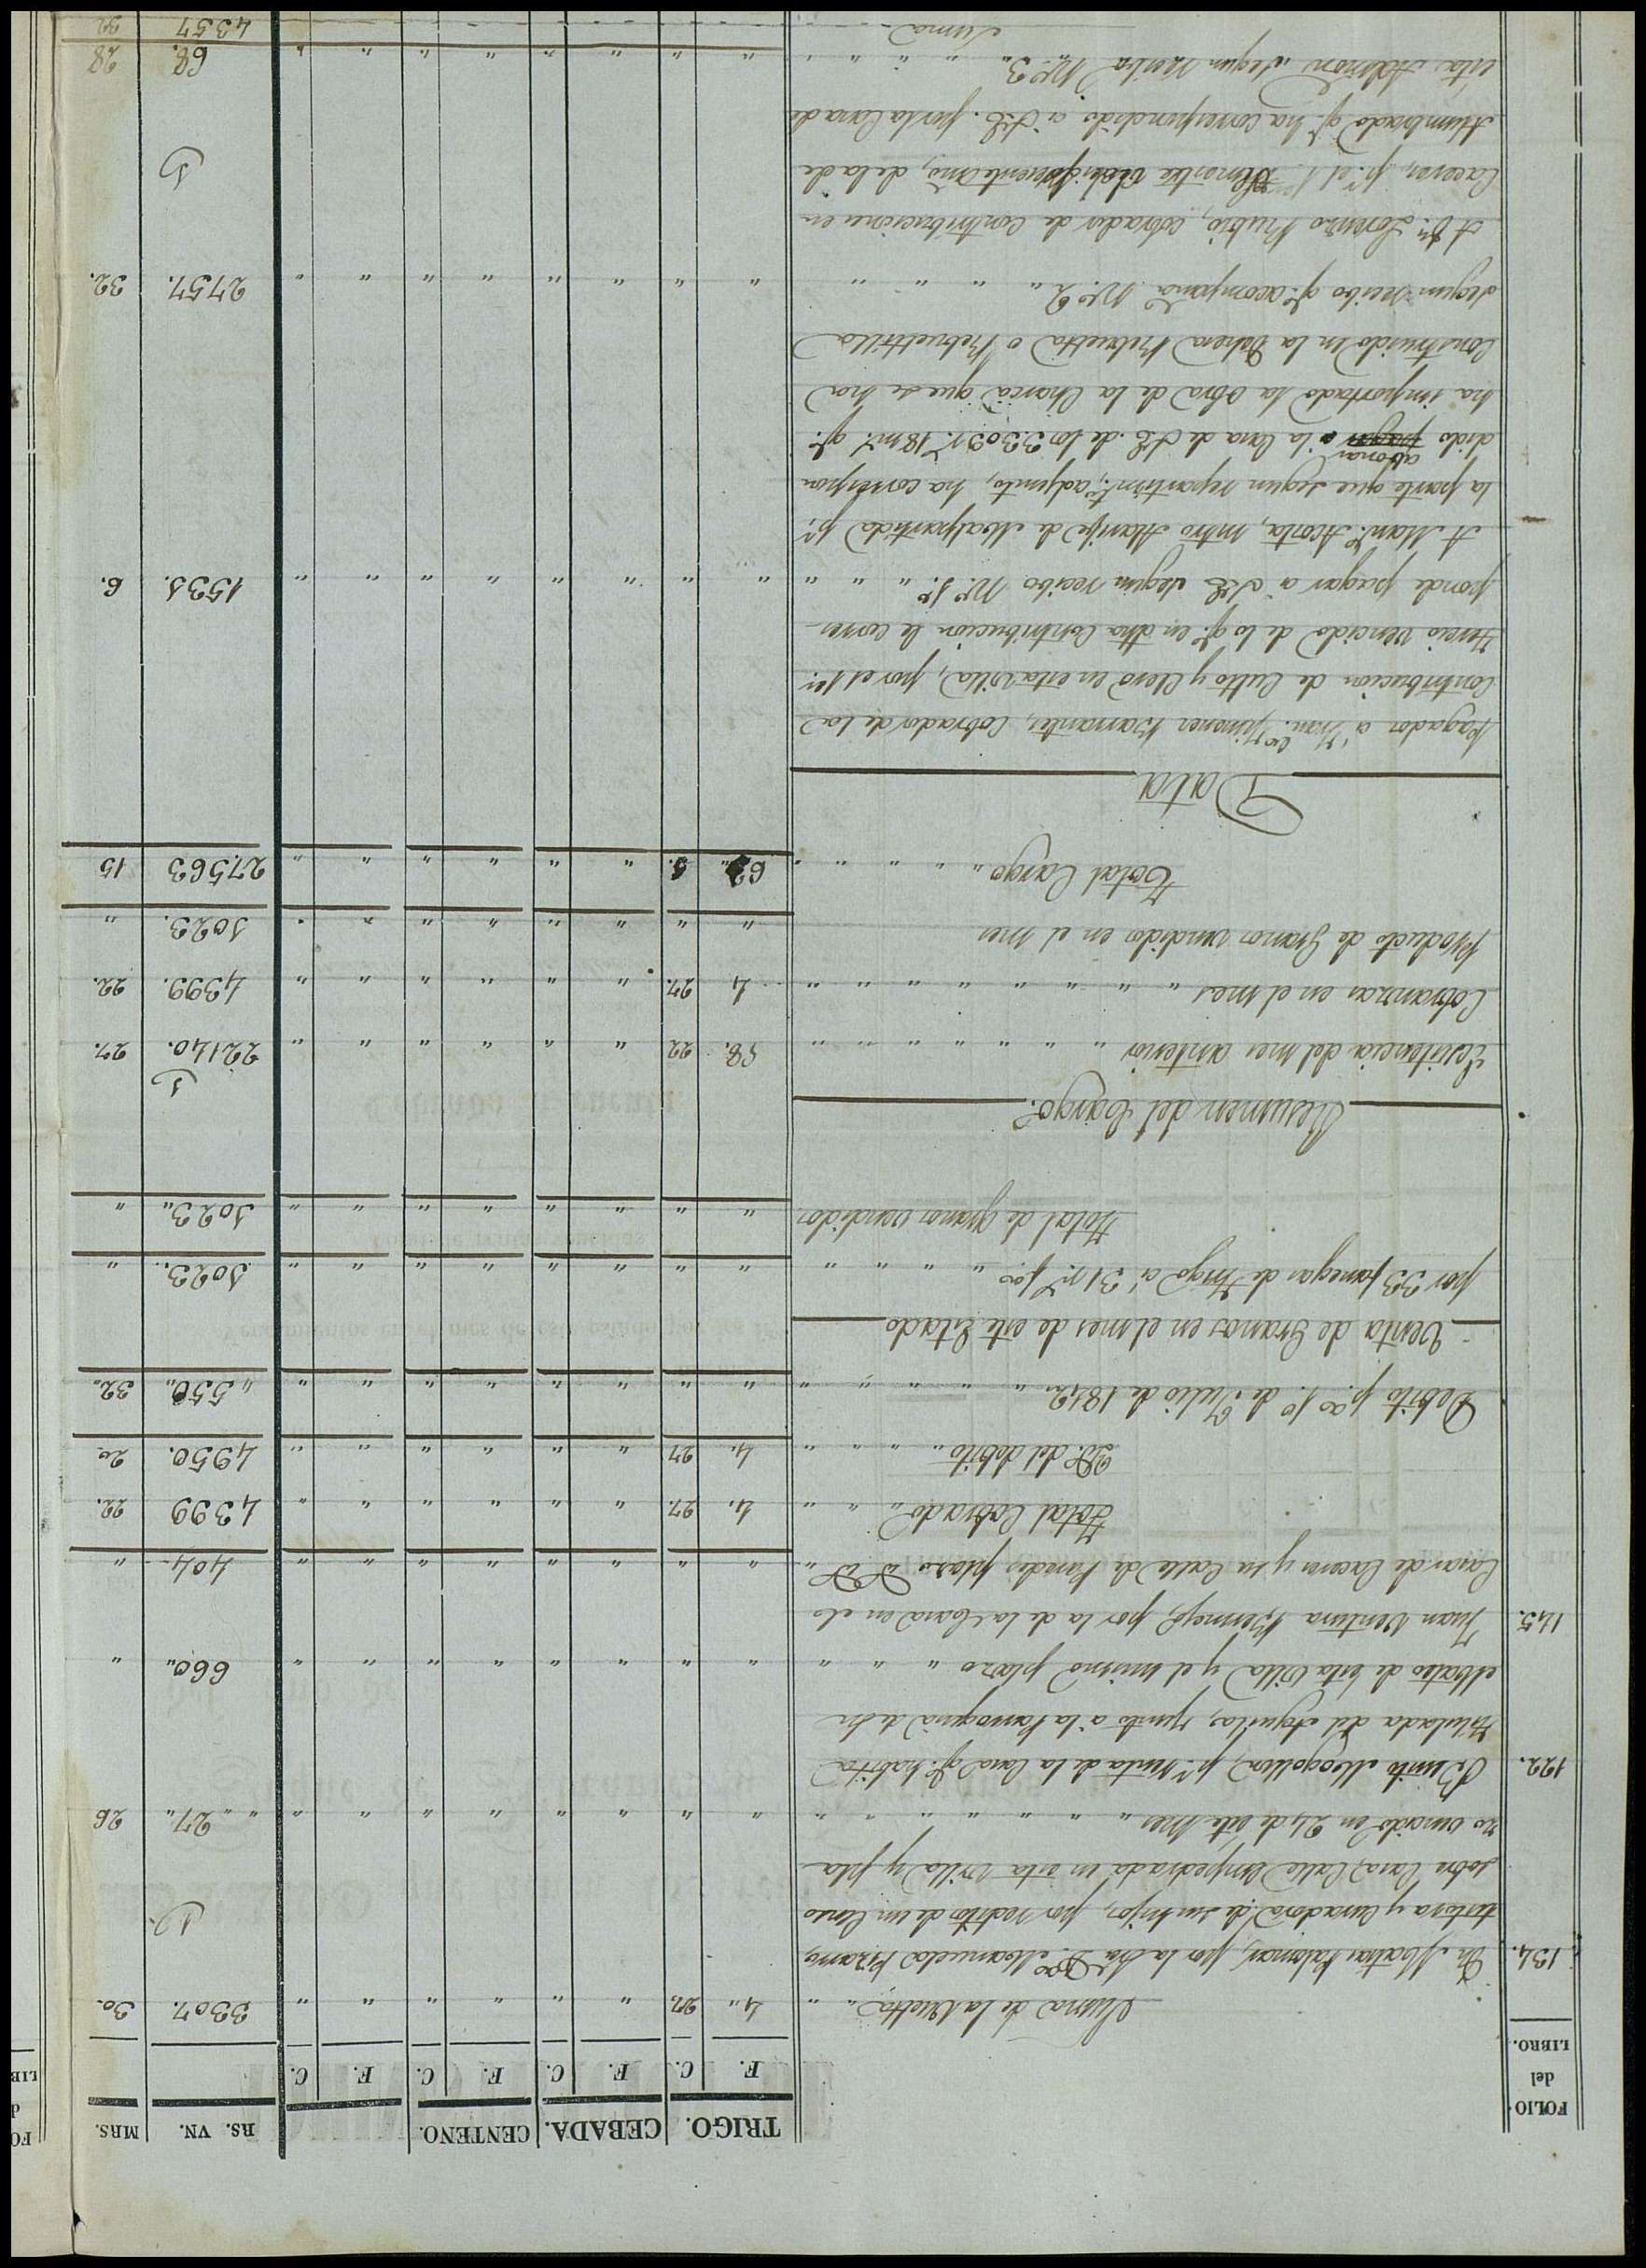 FOLIO del LIBRO. TRIGO. CEBADA. CENTENO. RS. VN. MRS.
F. C. F. C. F. C. F. C.
Suma de la Vuelta 4 27 " " " " " " 3307. 30.
134. Dn Matias Palomar, por la Sra Da Manuela Pizarro,
tutora y curadora de sus hijos, por redito de un Censo
sobre Casa, Calle Empedrada en esta Villa y pla
zo vencido en 24 de este mes " " " " " " " " 27 26
122. Benito Mogollon, pr renta de la Casa qe habita
titulada del Aguila, junto a la Parroquia de Sn
Mateo de esta Villa y el mismo plazo " " " " " " " " 660 "
145. Juan Ventura Bermejo, por la de la Casa en el
Casar de Caceres y su Calle de Paredes plazo " " " " " " " " 404 "
Total Cobrado 4 27. " " " " " " 4399 22.
Yd. del debito 4. 27 " " " " " " 4950. 20
Debito pa 1o de Julio de 1842 " " " " " " " " 550 32
Venta de Granos en el mes de este Estado
por 33 fanegas de trigo a 31 rs fa " " " " " " " " 1023. "
Total de granos vendidos " " " " " " " " 1023 "
Resumen del Cargo.
Existencia del mes anterior 58. 22 " " " " " " 22140. 27.
Cobranzas en el mes 4 27. " " " " " " 4399. 22.
Producto de Granos vendidos en el mes " " " " " " " " 1023. "
Total Cargo 63 1. " " " " " " 27563 15
Data
Pagados a Franco Jimenez Barrantes, Cobrador de la
Contribucion de Culto y Clero en esta Villa, por el 1er
tercio vencido de lo qe en dha Contribucion le corres-
ponde pagar a S.E. segun recibo No. 1o " " " " " " " " 1531. 6.
A Manl Acosta, mtro Alarife de Malpartida pr
la parte que segun repartimto adjunto, ha correspon
dido abonar a la Casa de S.E. de los 3.309 rs 18 ms qe
ha importado la obra de la Charca que se ha
Construido en la Dehesa Rebuelta o Rebueltilla
segun recibo qe acompaña No. 2 " " " " " " " " 2757. 32.
A Dn Lorenzo Rubio, cobrador de Contribuciones en
Caceres, pr el 1er Semestre del presente año, de la de
Alumbrado qe ha correspondido a S.E. por la Casa de
esta Admon segun recibo No. 3 " " " " " " " " 68. 28
Suma 4357 32